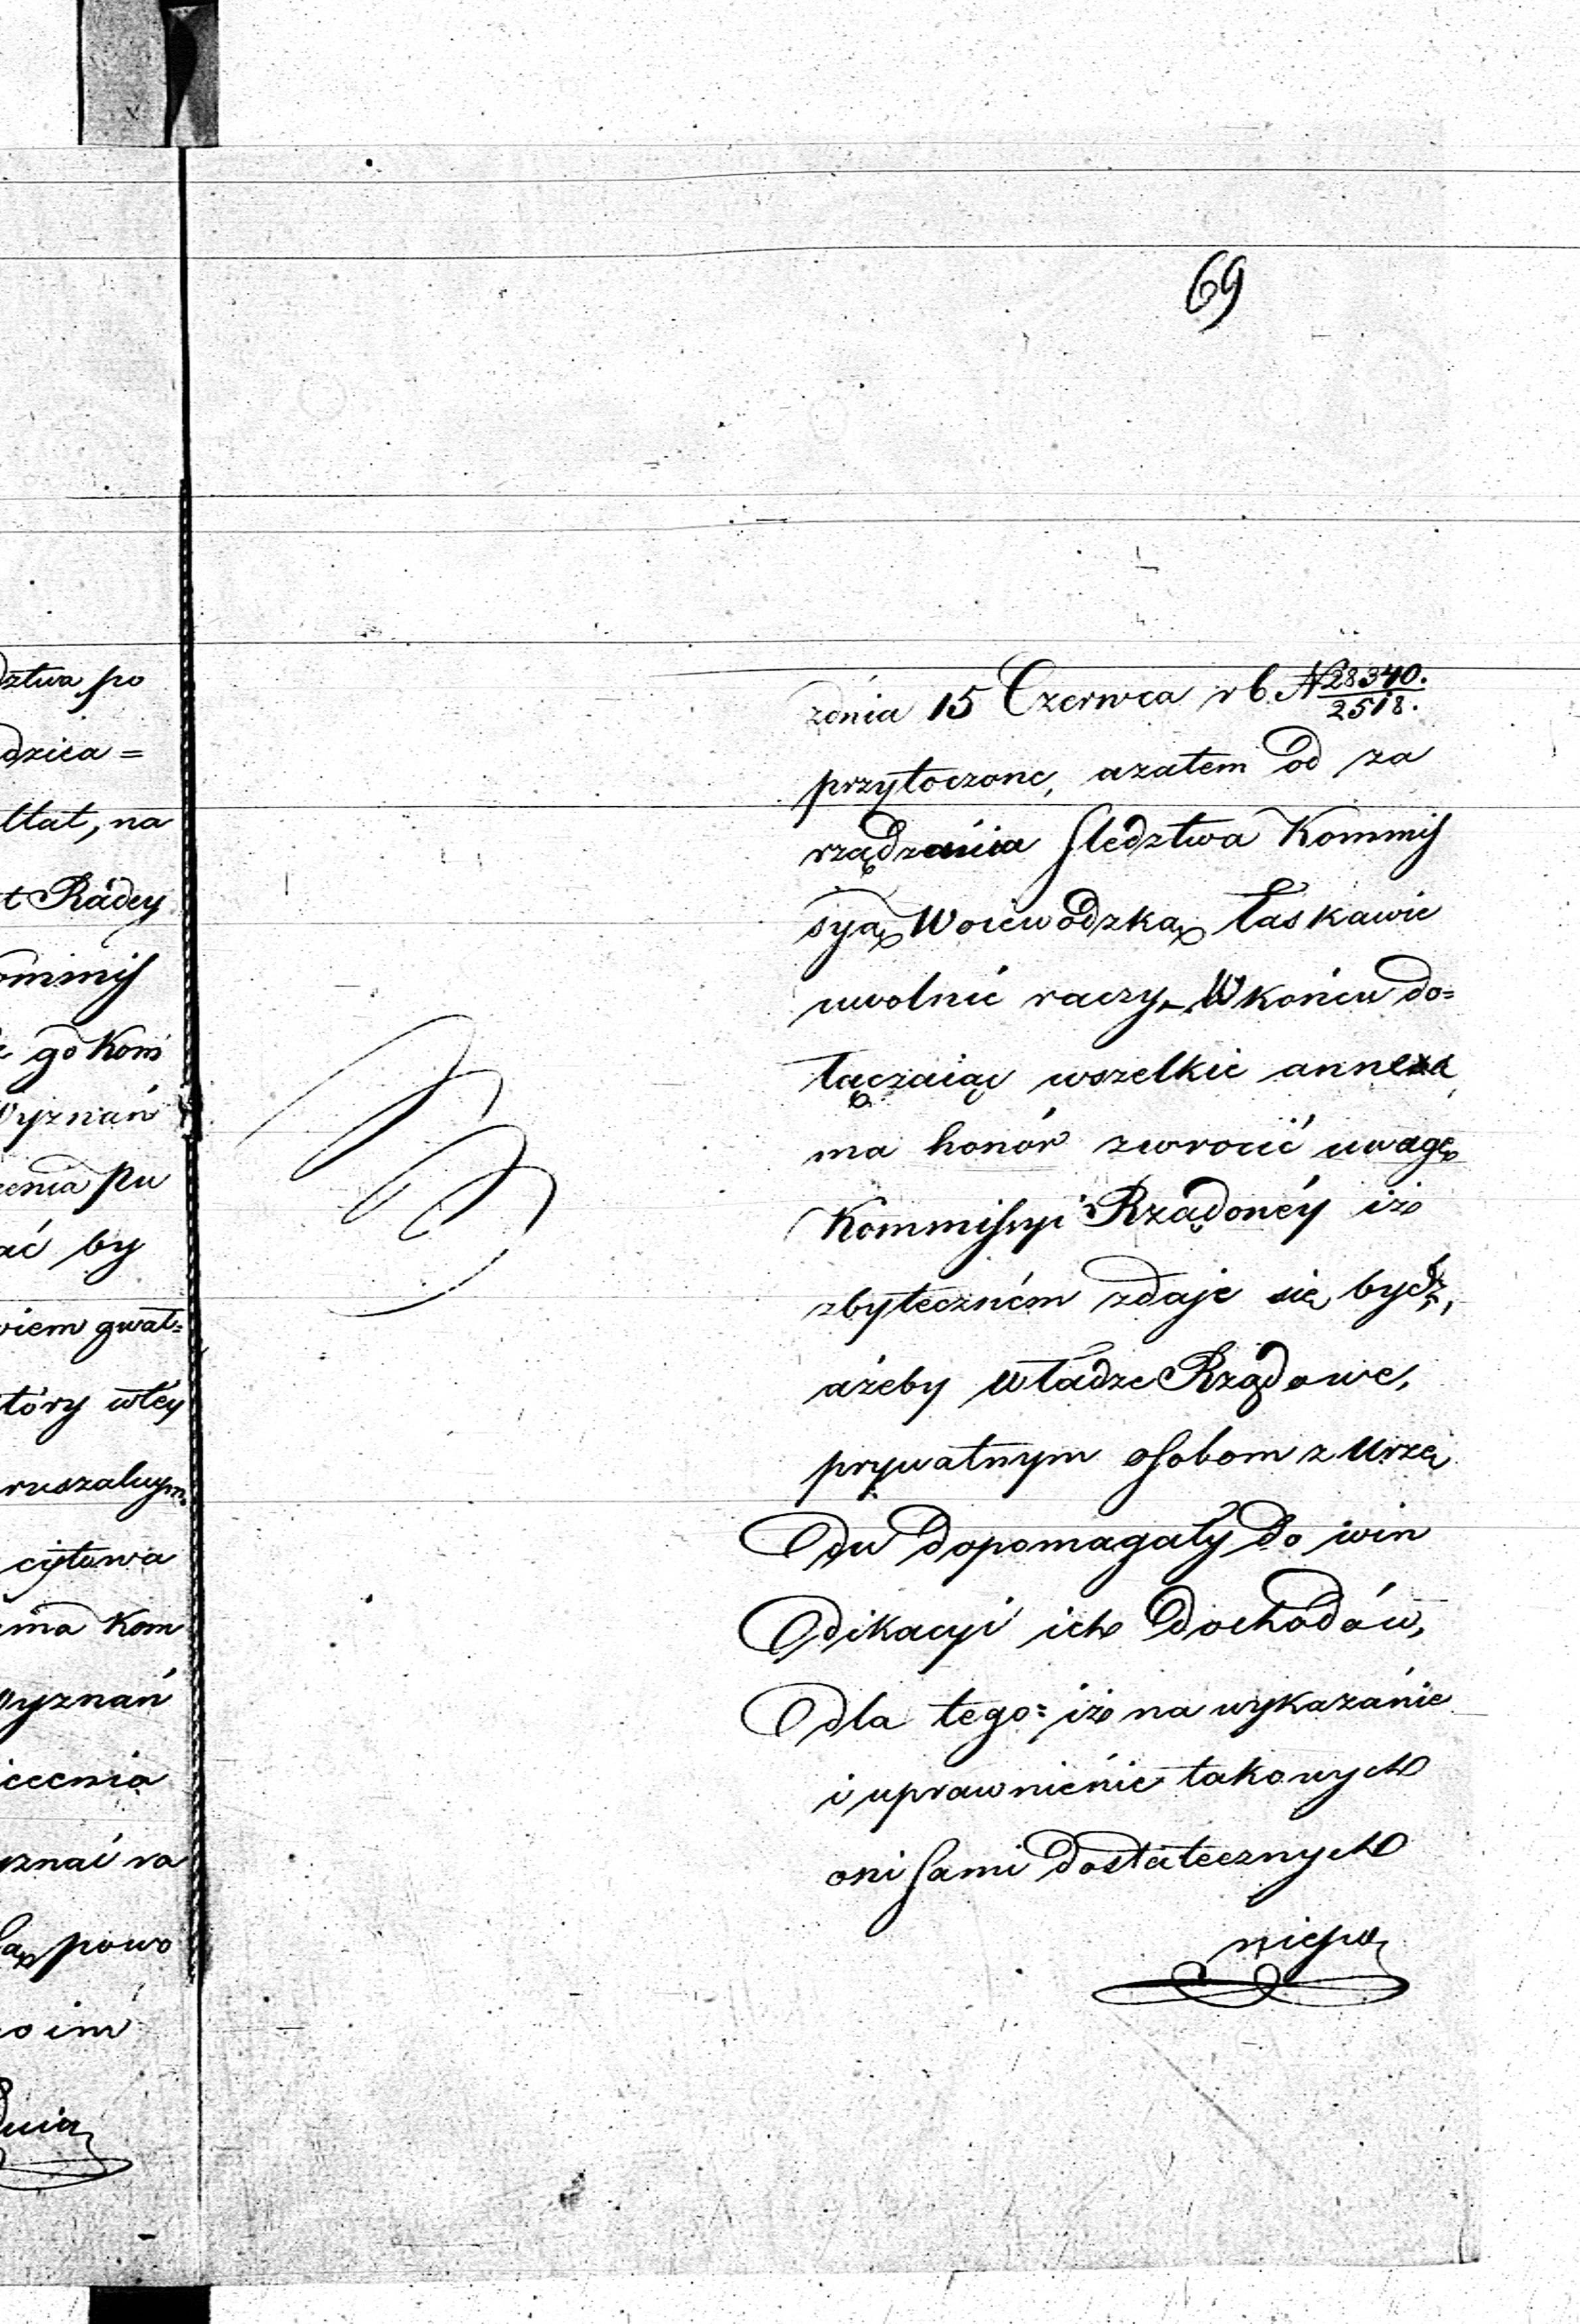 69
dztwa po
dzica=
ltat, na
t Radcy
ommis
go Kom
Wyznań
cenia pu
ać by
wiem gwał=
tóry wtey
ruszalnym
cytowa
ma Kom
Wyznań
iecenia
yznać ra
powo
o im
Dnia
zdnia 15 Czerwca r b. N 28340./2518.
przytoczone, azatem od za
rządzania sledztwa Kommis
syą Woiewodzką łaskawie
uwolnić raczy – W końcu do=
łączaiąc wszelkie annexa
ma honór zwrocić uwagę
Kommissyi Rządowéy iż
zbyteczném zdaje się bydź,
ażeby Władze Rządowe,
prywatnym osobom z Urzę
du dopomagały do win
dikacyi ich dochodów,
dla tego= iż na wykazánie
i uprawniénie takowych
oni sami dostatecznych
niesą